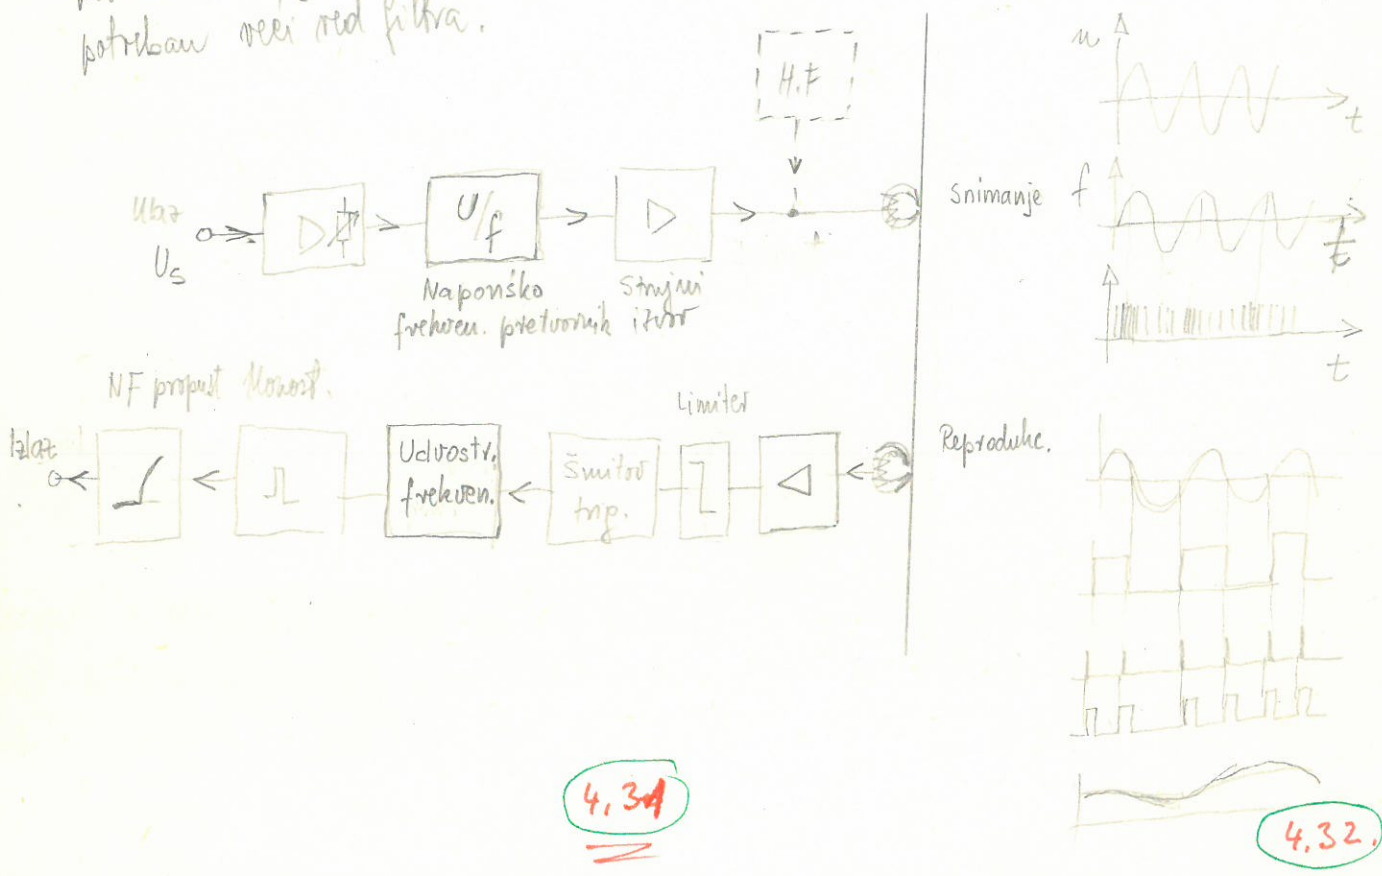 potreban veći red filtra.
H.F
u
t
Ulaz
Us
U/f
Snimanje
f
t
Naponsko
frekven. pretvornik
Strujni
izvor
t
NF propust
Monost.
Limiter
Izlaz
Udvostr.
frekven.
Šmitov
trig.
Reprodukc.
4.31
4.32.